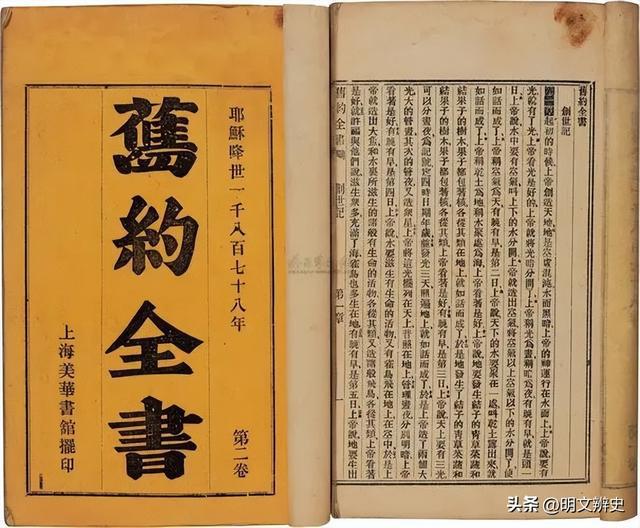 耶穌降世一千八百七十八年
第二卷
舊約全書
上海美華書館擺印
舊約全書
創世記
起初的時候上帝創造天地地是空虛混沌水面黑暗上帝的神運行在水面上上帝說要有
光就有了光上帝看光是好的上帝就將光暗分開了上帝稱光爲晝稱暗爲夜有晚有早就是頭一
日上帝說水中要有空氣將上下的水分開上帝就造出空氣將空氣以上空氣以下的水分開了便
如話而成了上帝稱空氣爲天有晚有早是第二日上帝說天下的水要聚在一處叫乾土露出來就
如話而成了上帝稱乾土爲地稱水聚處爲海上帝看著是好上帝說地要發生結子的青草菜蔬和
結果子的樹木果子都包著核各從其類在地上就如話而成了於是地發生了結子的青草菜蔬和
結果子的樹木果子都包著核各從其類上帝看著是好有晚有早是第三日上帝說天上要有光
可以分晝夜爲記號定四時日期年歲發光天照遍地上就如話而成了於是上帝造了兩個大
光大的管晝其次的管夜又造眾星上帝將這光擺列在天上普照在地上管理晝夜分別明暗上帝
看著是好有晚有早是第四日上帝說水要滋生有生命的活物又有雀鳥飛在地上在空中上
帝就造出大魚和水裏所滋生的諸般有生命的活物各從其類又造諸般飛鳥各從其類上帝看著
是好就賜福與他們說滋生眾多充滿了海雀鳥也多生在地有晚有早是第五日上帝說地要生出
舊約全書 創世記 第一章
頭条 @明文辨史